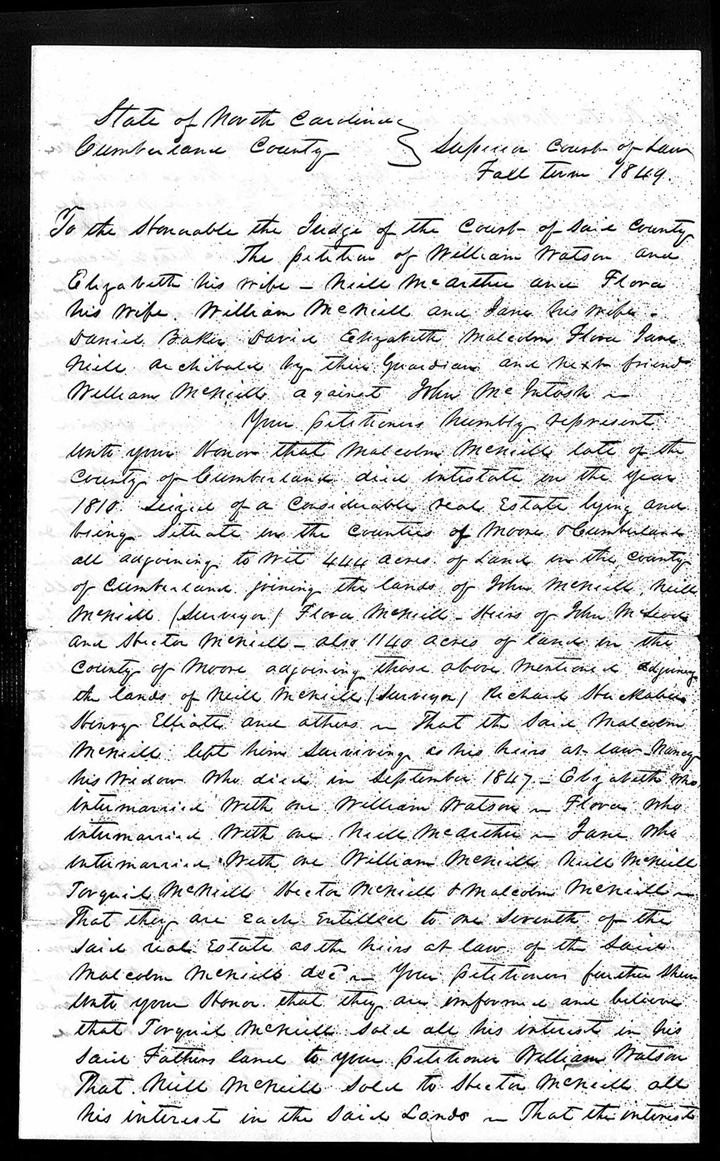 State of North Carolina }
Cumberland County } Superior Court of Law
Fall term 1849.
To the Honorable the Judge of the Court of said County
The petition of William Watson and
Elizabeth his wife – Neill McArthur and Flora
his wife. William McNeill and Jane his wife.
Daniel Baker David Elizabeth Malcolm Flora Jane
Neill Archibald by their Guardian and next friend
William McNeill against John McIntosh –
Your petitioners humbly represent
unto your Honor that Malcolm McNeill late of the
County of Cumberland died intestate in the year
1810. Seized of a Considerable real Estate lying and
being Situate in the Counties of Moore & Cumberland
all adjoining to wit 444 acres of Land in the County
of Cumberland joining the lands of John McNeill, Neill
McNeill (Surveyor) Flora McNeill – Heirs of John McLeod
and Hector McNeill – also 1140 acres of land in the
County of Moore adjoining those above mentioned adjoining
the lands of Neill McNeill (Surveyor) Richard
Henry Elliott and others – That the Said Malcolm
McNeill left him Surviving as his heirs at law Nancy
his Widow who died in September 1847 – Elizabeth who
intermarried with one William Watson – Flora who
intermarried With one Neill McArthur – Jane who
intermarried With one William McNeill Neill McNeill
Torquil McNeill Hector McNeill & Malcolm McNeill –
That they are each entitled to one Seventh of the
Said real Estate as the heirs at law of the Said
Malcolm McNeill decd – Your petitioners further Shew
unto your Honor that they are informed and believe
that Torquil McNeill Sold all his interest in his
Said Fathers land to your petitioner William Watson
That Neill McNeill Sold to Hector McNeill all
his interest in the Said Lands – That the interests